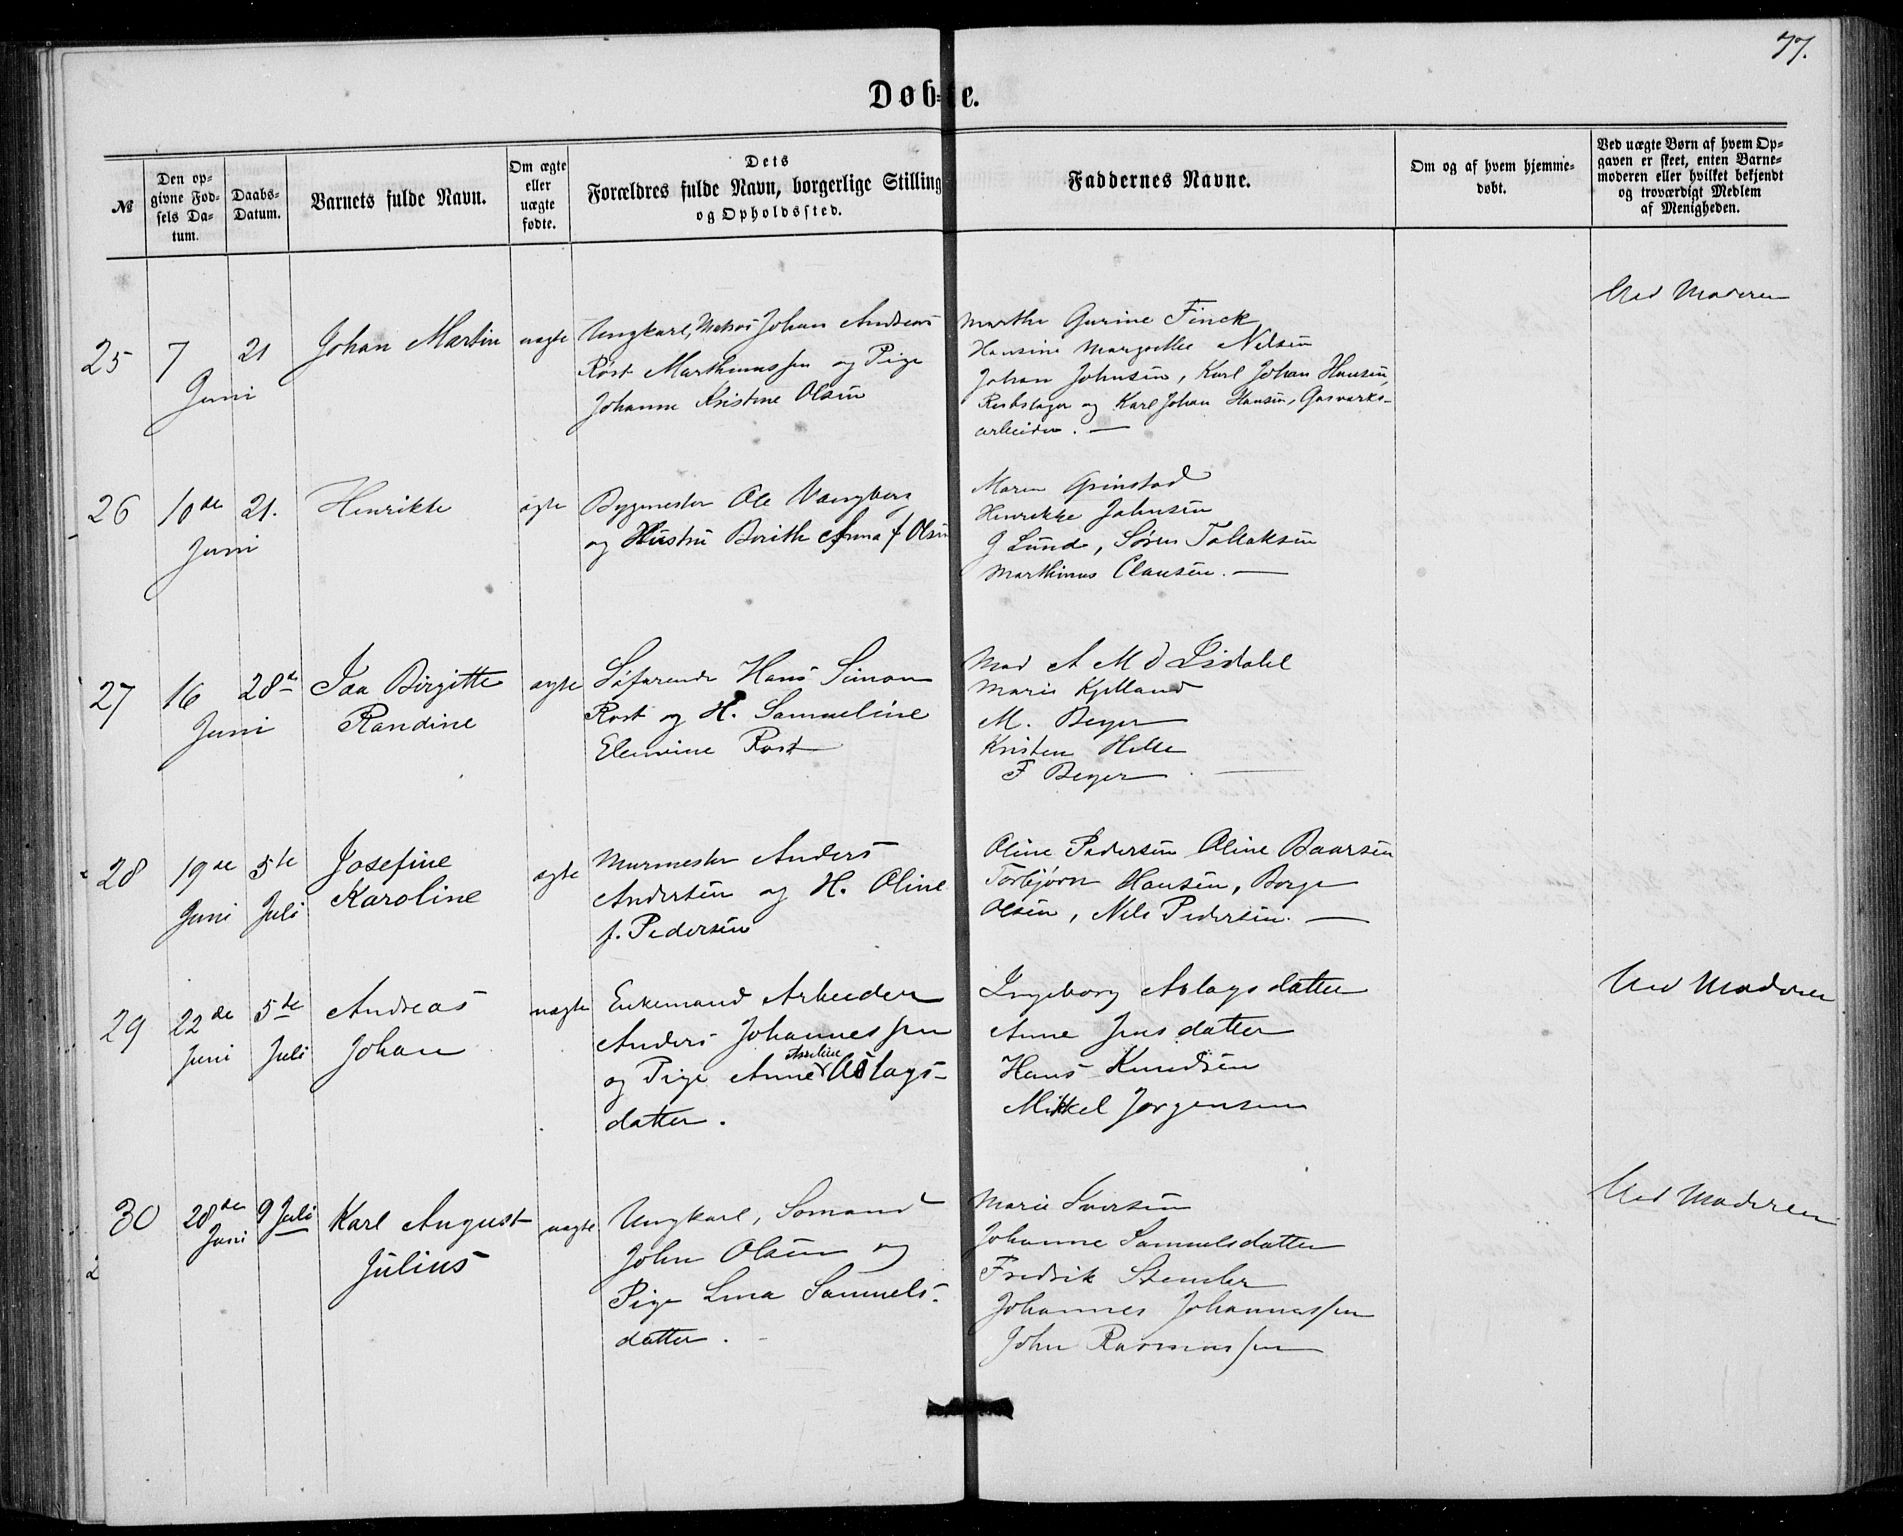 77.
Døbte.
№
Den opgivne Fødsels Datum.
Daabs-Datum.
Barnets fulde Navn.
Om ægte eller uægte fødte.
Dets Forældres fulde Navn, borgerlige Stilling og Opholdssted.
Faddernes Navne.
Om og af hvem hjemmedøbt.
Ved uægte Børn af hvem Opgaven er skeet, enten Barnemoderen eller hvilket bekjendt og troværdigt Medlem af Menigheden.
25
7 Juni
21
Johan Martin
uægte
Ungkarl, Matros Johan Andreas
Rost Marthinussen og Pige
Johanne Kristine Olsen
Marthe Gurine Finck
Hansine Margrethe Nelsen
Johan Johnsen, Karl Johan Hansen,
Rebslager og Karl Johan Hansen, Gasværks-
arbeider. —
Ved Moderen
26
10de Juni
21.
Henrikke
ægte
Bygmester Ole Vangberg
og Hustru Berithe Anna f Olsen
Maren Grinstad
Henrikke Johnsen
G Lunde, Søren Tollaksen
Marthinus Clausen. —
27
16 Juni
28de
Ida Birgitte
Randine
ægte
Søfarende Hans Simon
Rost og H. Samueline
Elenvine Rost
Mad A M d Lisdahl
Marie Kjelland
M. Beyer
Kristen Helle
F Beyer —
28
19de Juni
5te Juli
Josefine
Karoline
ægte
Murmester Anders
Andersen og H. Oline
f. Pedersen
Oline Pedersen Oline Baarsen
Torbjørn Hansen, Borge
Olsen, Nels Pedersen. —
29
22de Juni
5te Juli
Andreas
Johan
uægte
Enkemand Arbeider
Anders Johannessen
og Pige Anne Asseline Aslags-
datter.
Ingeborg Aslagsdatter
Anne Jensdatter
Hans Knudsen
Mikkel Jørgensen
Ved Moderen
30
28de Juni
9 Juli
Karl August
Julius
uægte
Ungkarl, Sømand
John Olsen og
Pige Lina Samuels-
datter. -
Marie Iversen
Johanne Samuelsdatter
Fredrik Stemler
Johannes Johannessen
John Rasmussen
Ved Moderen